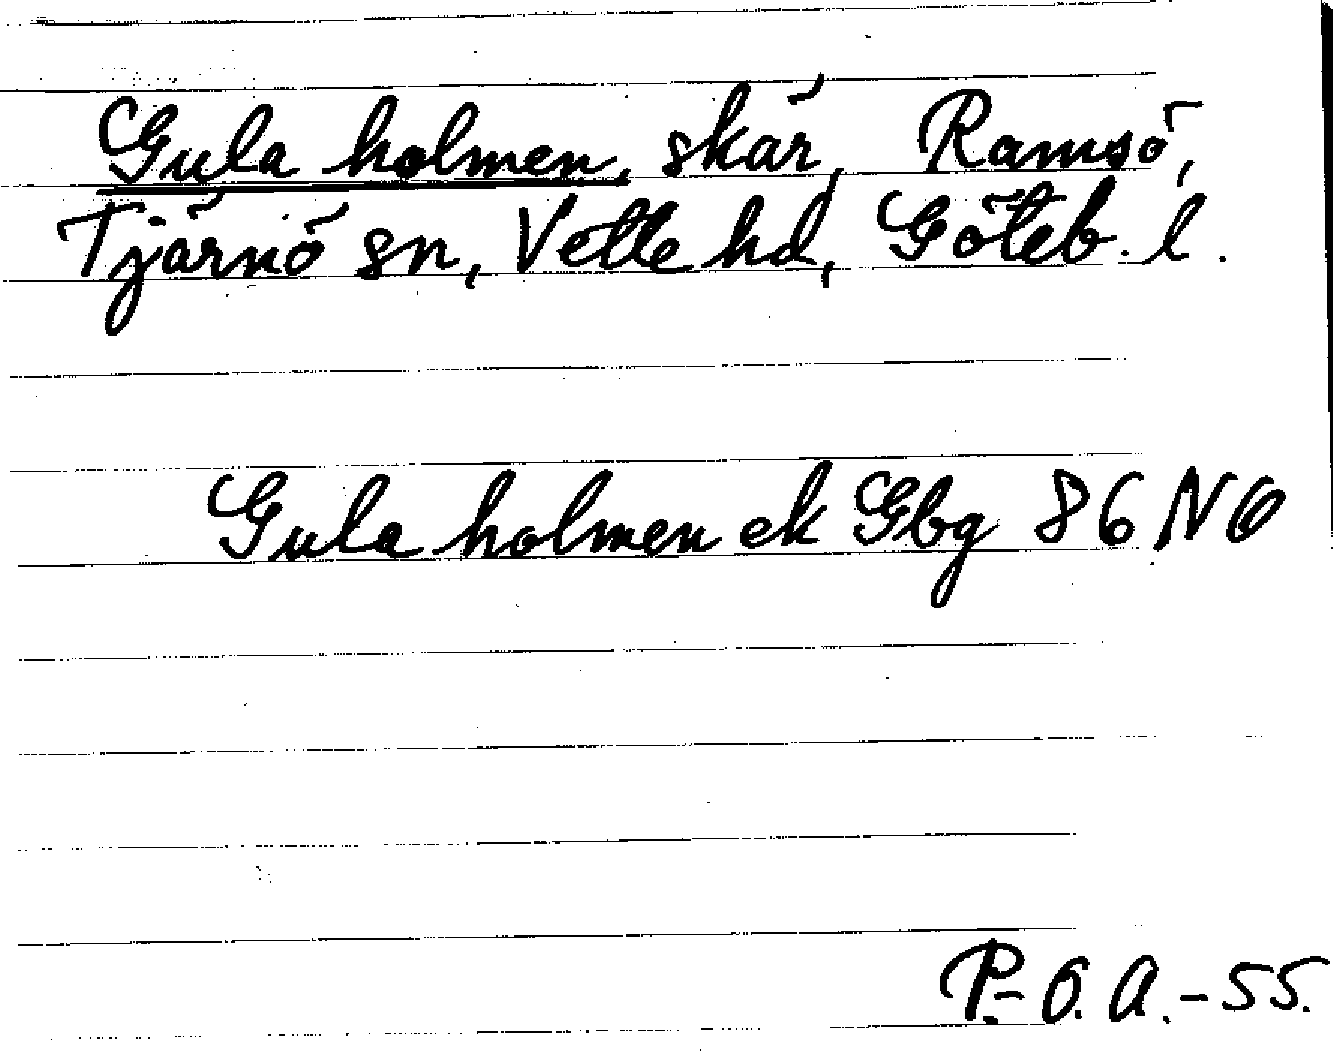 Gula holmen, skär, Ramsö,
Tjärnö sn, Vette hd, Göteb. l.
Gula holmen ek Gbg 86 NO
P.-O. A. -55.